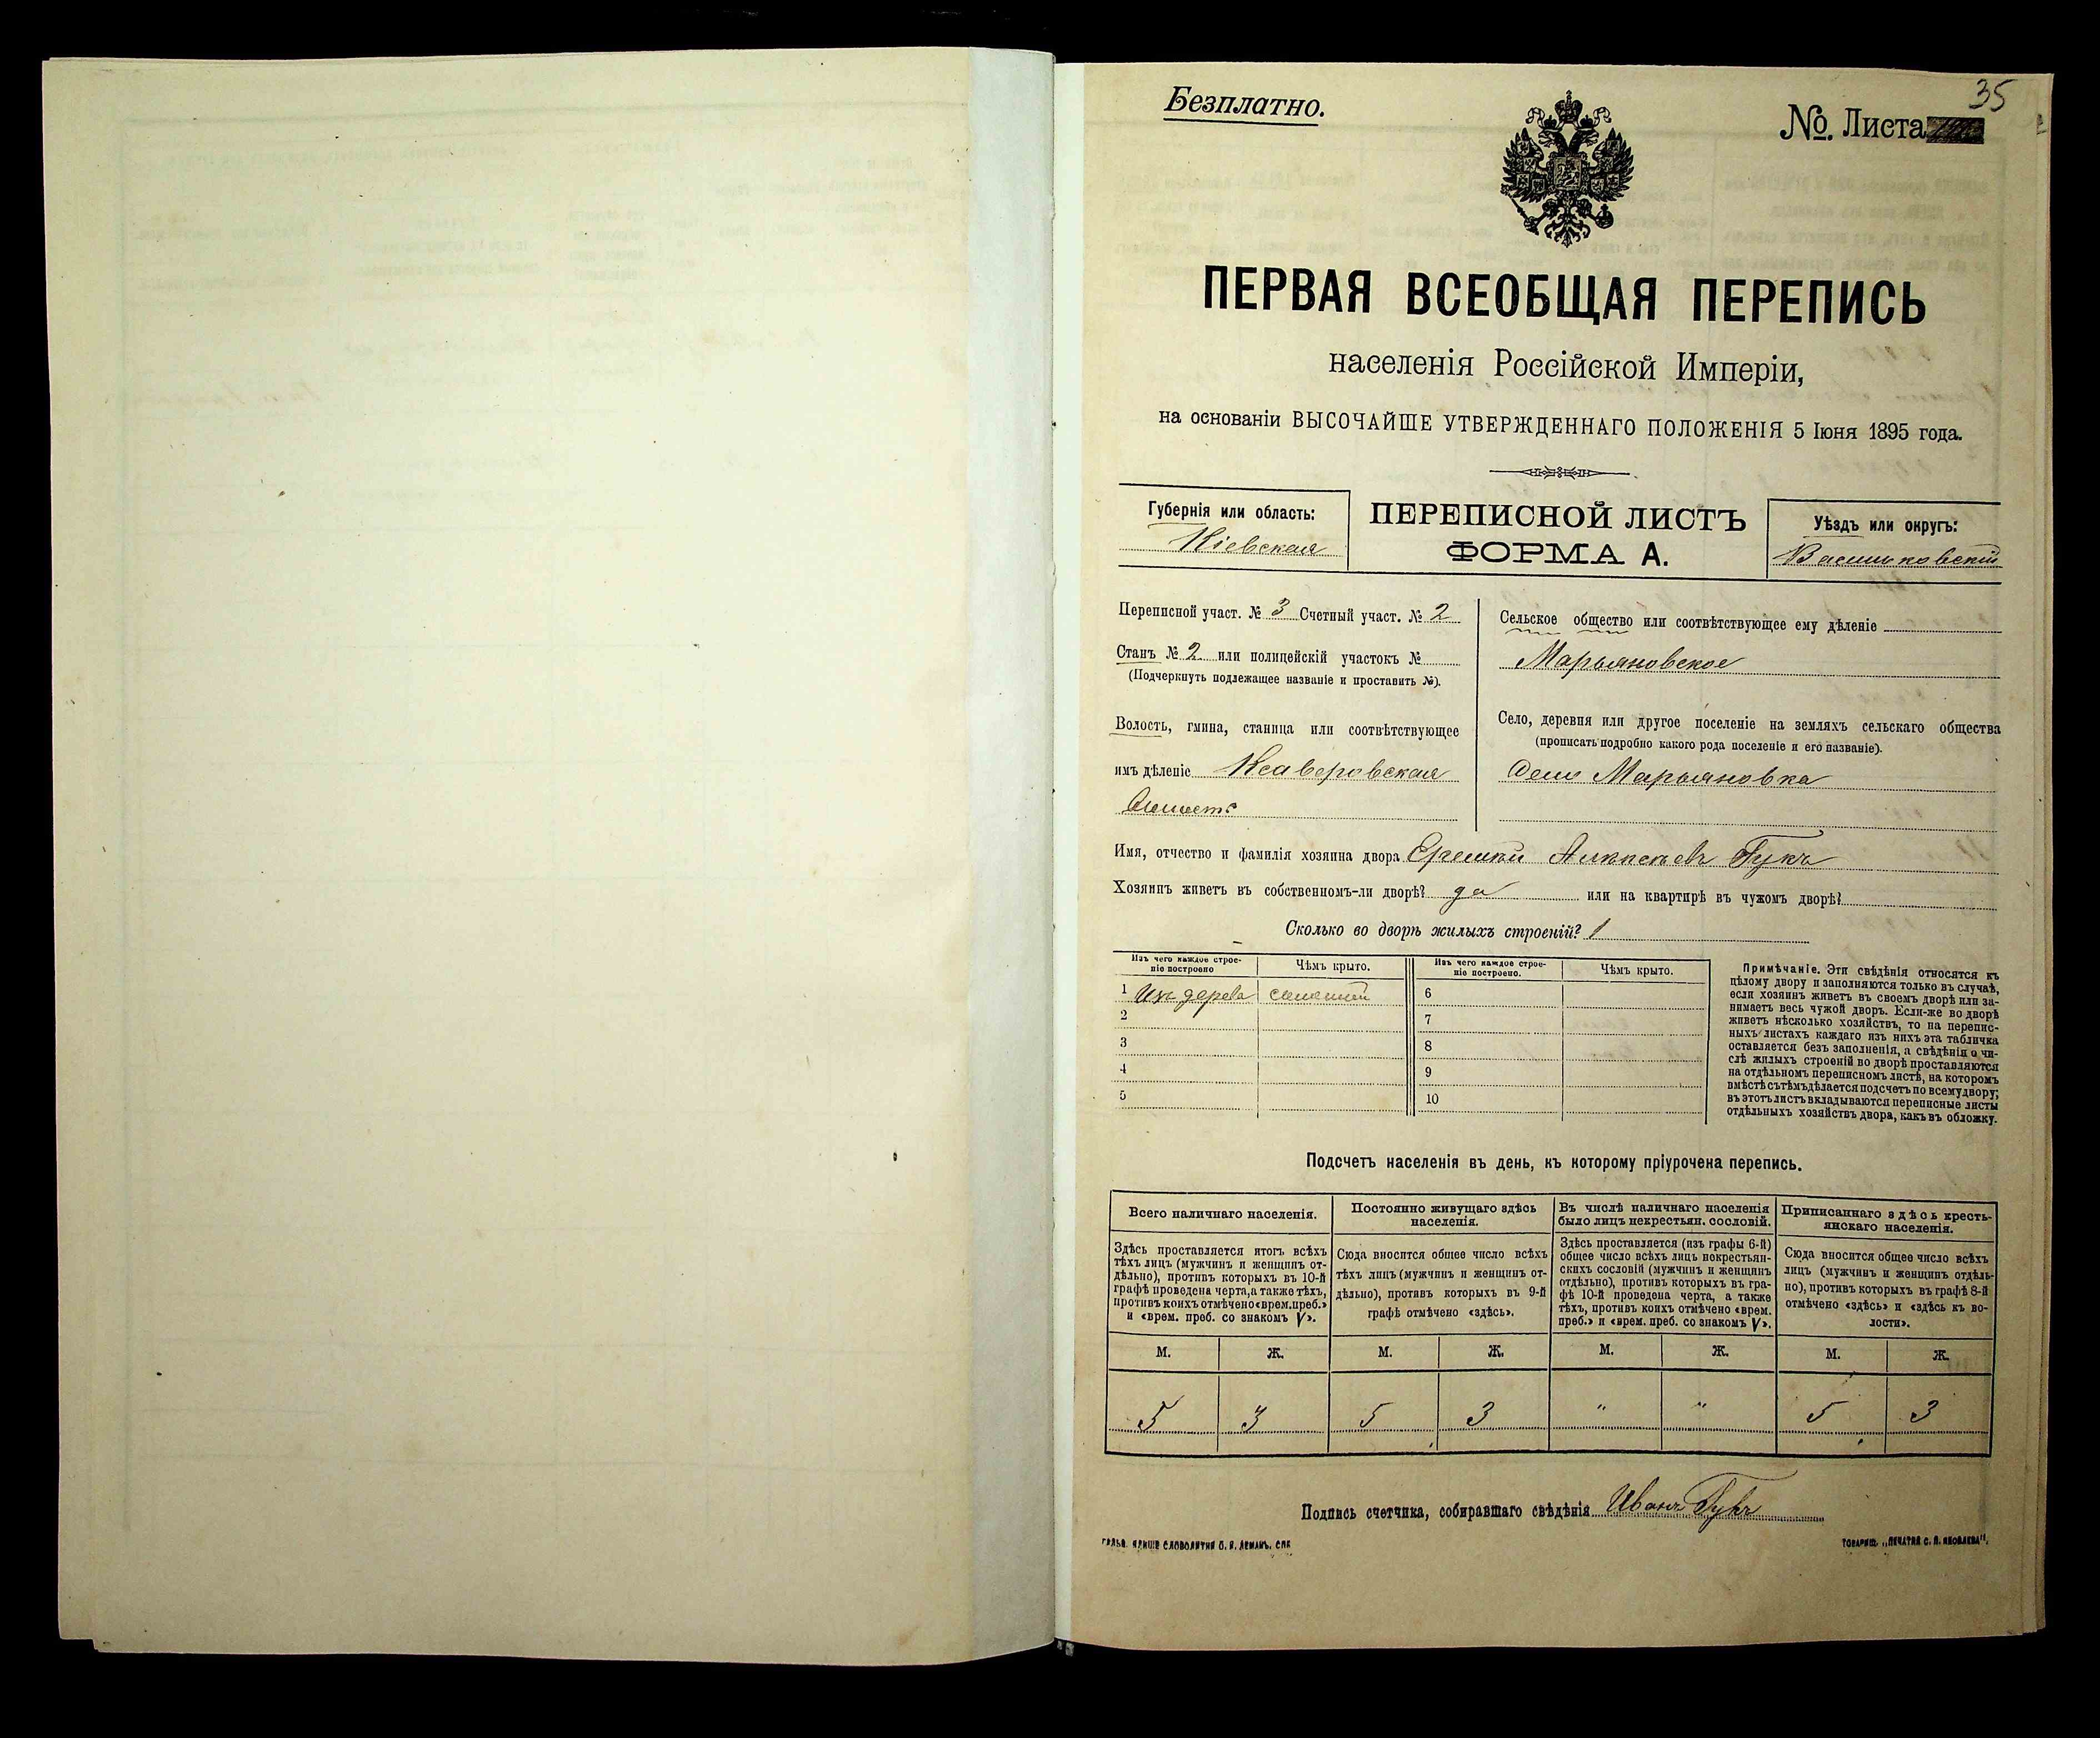 Безплатно.
35
№. Листа
ПЕРВАЯ ВСЕОБЩАЯ ПЕРЕПИСЬ
населенія Россійской Имперіи,
на основаніи ВЫСОЧАЙШЕ УТВЕРЖДЕННАГО ПОЛОЖЕНІЯ 5 Іюня 1895 года.
Губернія или область:
Кіевская
ПЕРЕПИСНОЙ ЛИСТЪ
ФОРМА А.
Уѣздъ или округъ:
Васильковскій
Переписной участ. № 3 Счетный участ. № 2
Станъ № 2 или полицейскій участокъ №
(Подчеркнуть подлежащее названіе и проставить №).
Волость, гмина, станица или соотвѣтствующее
имъ дѣленіе Ксаверовская
Сельское общество или соотвѣтствующее ему дѣленіе
Марьяновское
Село, деревня или другое поселеніе на земляхъ сельскаго общества
(прописать подробно какого рода поселеніе и его названіе).
Село Марьяновка
Имя, отчество и фамилія хозяина двора Алексѣевъ Гукъ
Хозяинъ живетъ въ собственномъ-ли дворѣ? да или на квартирѣ въ чужомъ дворѣ?
Сколько во дворѣ жилыхъ строеній? 1
Изъ чего каждое строе-
ніе построено
Чѣмъ крыто.
Изъ чего каждое строе-
ніе построено.
Чѣмъ крыто.
1 Изъ дерева
6
2
7
3
8
4
9
5
10
Примѣчаніе. Эти свѣдѣнія относятся къ
цѣлому двору и заполняются только въ случаѣ,
если хозяинъ живетъ въ своемъ дворѣ или за-
нимаетъ весь чужой дворъ. Если-же во дворѣ
живетъ нѣсколько хозяйствъ, то на перепис-
ныхъ листахъ каждаго изъ нихъ эта табличка
оставляется безъ заполненія, а свѣдѣнія о чи-
слѣ жилыхъ строеній во дворѣ проставляются
на отдѣльномъ переписномъ листѣ, на которомъ
вмѣстѣ съ тѣмъ дѣлается подсчетъ по всему двору;
въ этотъ листъ вкладываются переписные листы
отдѣльныхъ хозяйствъ двора, какъ въ обложку.
Подсчетъ населенія въ день, къ которому пріурочена перепись.
Всего наличнаго населенія.
Здѣсь проставляется итогъ всѣхъ
тѣхъ лицъ (мужчинъ и женщинъ от-
дѣльно), противъ которыхъ въ 10-й
графѣ проведена черта, а также тѣхъ,
противъ коихъ отмѣчено «врем. преб.»
и «врем. преб. со знакомъ V».
Постоянно живущаго здѣсь
населенія.
Сюда вносится общее число всѣхъ
тѣхъ лицъ (мужчинъ и женщинъ от-
дѣльно), противъ которыхъ въ 9-й
графѣ отмѣчено «здѣсь».
Въ числѣ наличнаго населенія
было лицъ некрестьян. сословій.
Здѣсь проставляется (изъ графы 6-й)
общее число всѣхъ лицъ некрестьян-
скихъ сословій (мужчинъ и женщинъ
отдѣльно), противъ которыхъ въ гра-
фѣ 10-й проведена черта, а также
тѣхъ, противъ коихъ отмѣчено «врем.
преб.» и «врем. преб. со знакомъ V».
Приписаннаго здѣсь кресть-
янскаго населенія.
Сюда вносится общее число всѣхъ
лицъ (мужчинъ и женщинъ отдѣль-
но), противъ которыхъ въ графѣ 8-й
отмѣчено «здѣсь» и «здѣсь къ во-
лости».
М. Ж. М. Ж. М. Ж. М. Ж.
5 3 5 3 " " 5 3
Подпись счетчика, собиравшаго свѣдѣнія Иванъ Гукъ
ГАЛЬВ. КЛИШЕ СЛОВОЛИТНИ О. И. ЛЕМАНЪ. СПБ
ТОВАРИЩ. „ПЕЧАТНЯ С. П. ЯКОВЛЕВА".